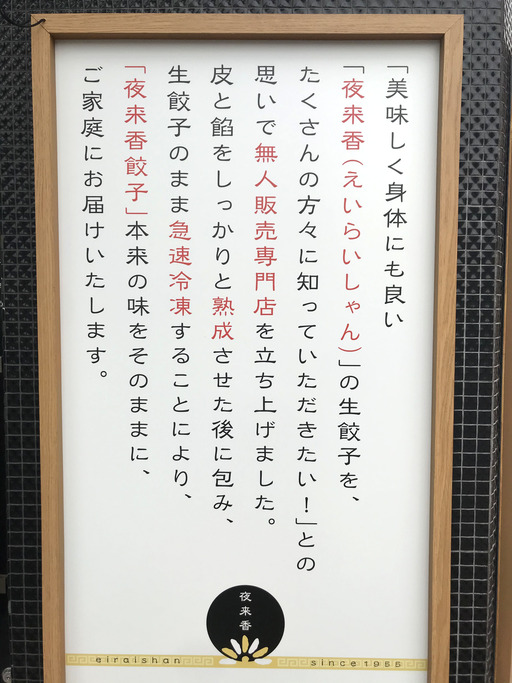 「美味しく身体にも良い
「夜来香(えいらいしゃん)」の生餃子を、
たくさんの方々に知っていただきたい!」との
思いで無人販売専門店を立ち上げました。
皮と餡をしっかりと熟成させた後に包み、
生餃子のまま急速冷凍することにより、
「夜来香餃子」本来の味をそのままに、
ご家庭にお届けいたします。
夜来香
eiraishan
since1955